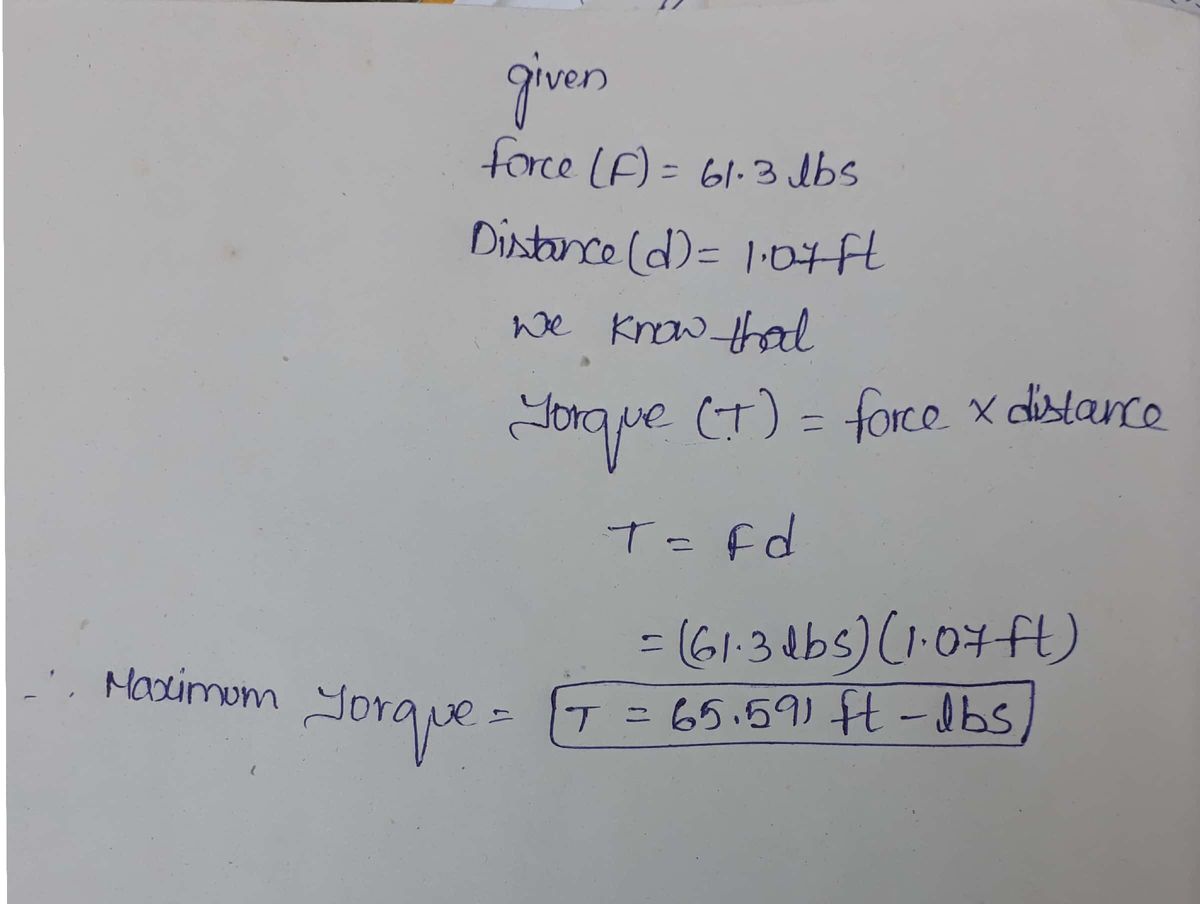 given
force (F) = 61.3 lbs
Distance (d) = 1.07 ft
we know that
Torque (T) = force x distance
T = Fd
= (61.3 lbs) (1.07 ft)
∴ Maximum Torque = T = 65.591 ft - lbs